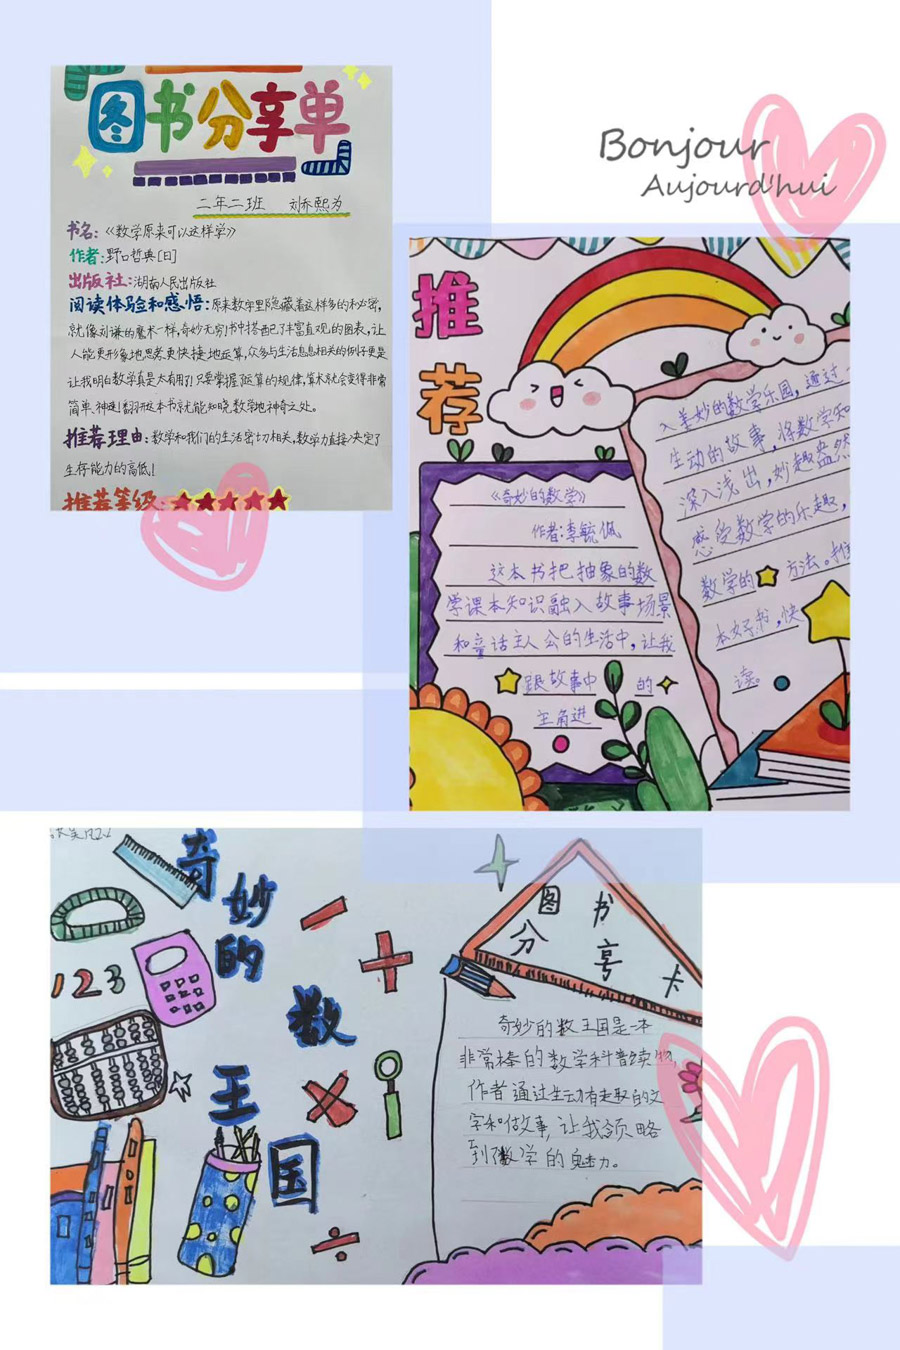 图书分享单
二年二班 刘乔熙为
书名:《数学原来可以这样学》
作者:野口哲典[日]
出版社:湖南人民出版社
阅读体验和感悟:原来数字里隐藏着这样多的秘密,
就像刘谦的魔术一样,奇妙无穷!书中搭配了丰富直观的图表,让
人能更形象地思考.更快捷地运算,众多与生活息息相关的例子更是
让我明白数学真是太有用了!只要掌握运算的规律,算术就会变得非常
简单、神速!翻开这本书就能知晓,数学地神奇之处。
推荐理由:数学和我们的生活密切相关,数学力直接决定了
生存能力的高低!
推荐等级:
Bonjour
Aujourd'hui
推
荐
《奇妙的数学》
作者:李毓佩
这本书把抽象的数
学课本知识融入故事场景
和童话主人公的生活中,让我
跟故事中 的
主角进
入美妙的数学乐园,通过
生动的故事,将数学知
深入浅出,妙趣盎然
感受数学的乐趣,
数学的 方法。推
本好书,快
读。
奇
妙
的
数
王
国
123
图书
分享卡
奇妙的数王国是一本
非常棒的数学科普读物,
作者通过生动有趣的文
字和故事,让我领略
到数学的魅力。